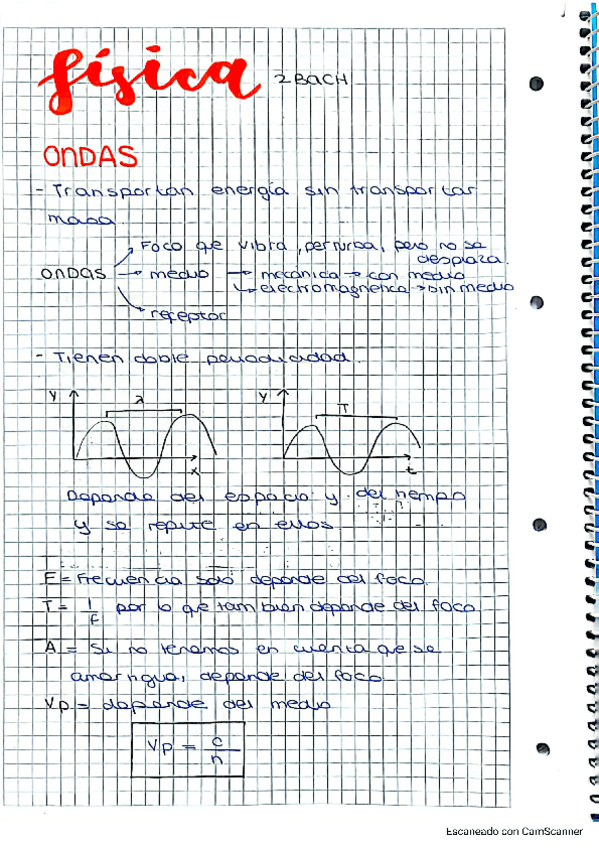 física 2 BACH
ONDAS
- Transportan energía sin transportar
masa.
Foco que vibra, perturba, pero no se
desplaza.
ONDAS → medio → mecánica → con medio
→ electromagnética → sin medio
receptor
- Tienen doble periodicidad.
y λ x
y T t
Depende del espacio y del tiempo
y se repite en ellos.
F = Frecuencia solo depende del foco.
T = 1/F por lo que tambien depende del foco.
A = Si no tenemos en cuenta que se
amortigua, depende del foco.
Vp = depende del medio
Vp = c/n
Escaneado con CamScanner